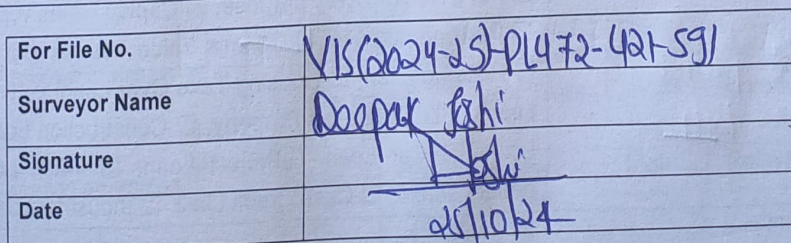 For File No. VIS(2024-25)-PL472-421-591
Surveyor Name Deepak Joshi
Signature Joshi
Date 25/10/24